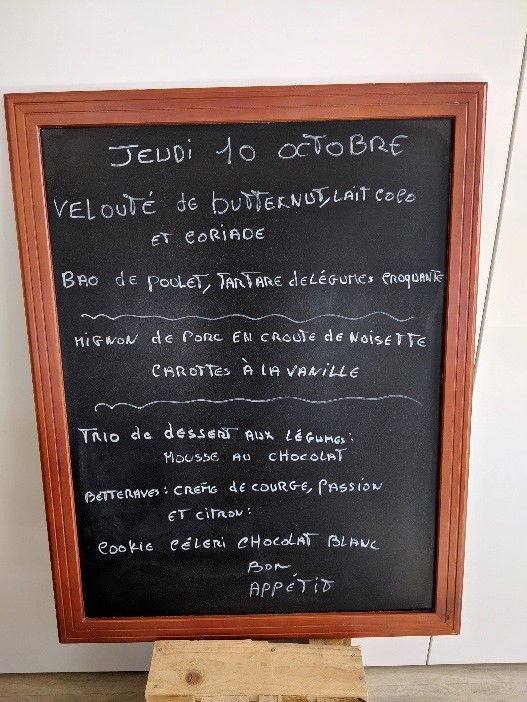 JEUDI 10 OCTOBRE
VELOUTÉ de BUTTERNUT, LAIT COCO
ET CORIADE
BAO de POULET, TARTARE de LÉGUMES CROQUANTE
MIGNON de PORC EN CROUTE de NOISETTE
CAROTTES À LA VANILLE
TRIO de dESSERT AUX LÉGUMES:
MOUSSE AU CHOCOLAT
BETTERAVES: CREME de COURGE, PASSION
ET CITRON:
COOKIE CÉLERI CHOCOLAT BLANC
BON
APPÉTIT